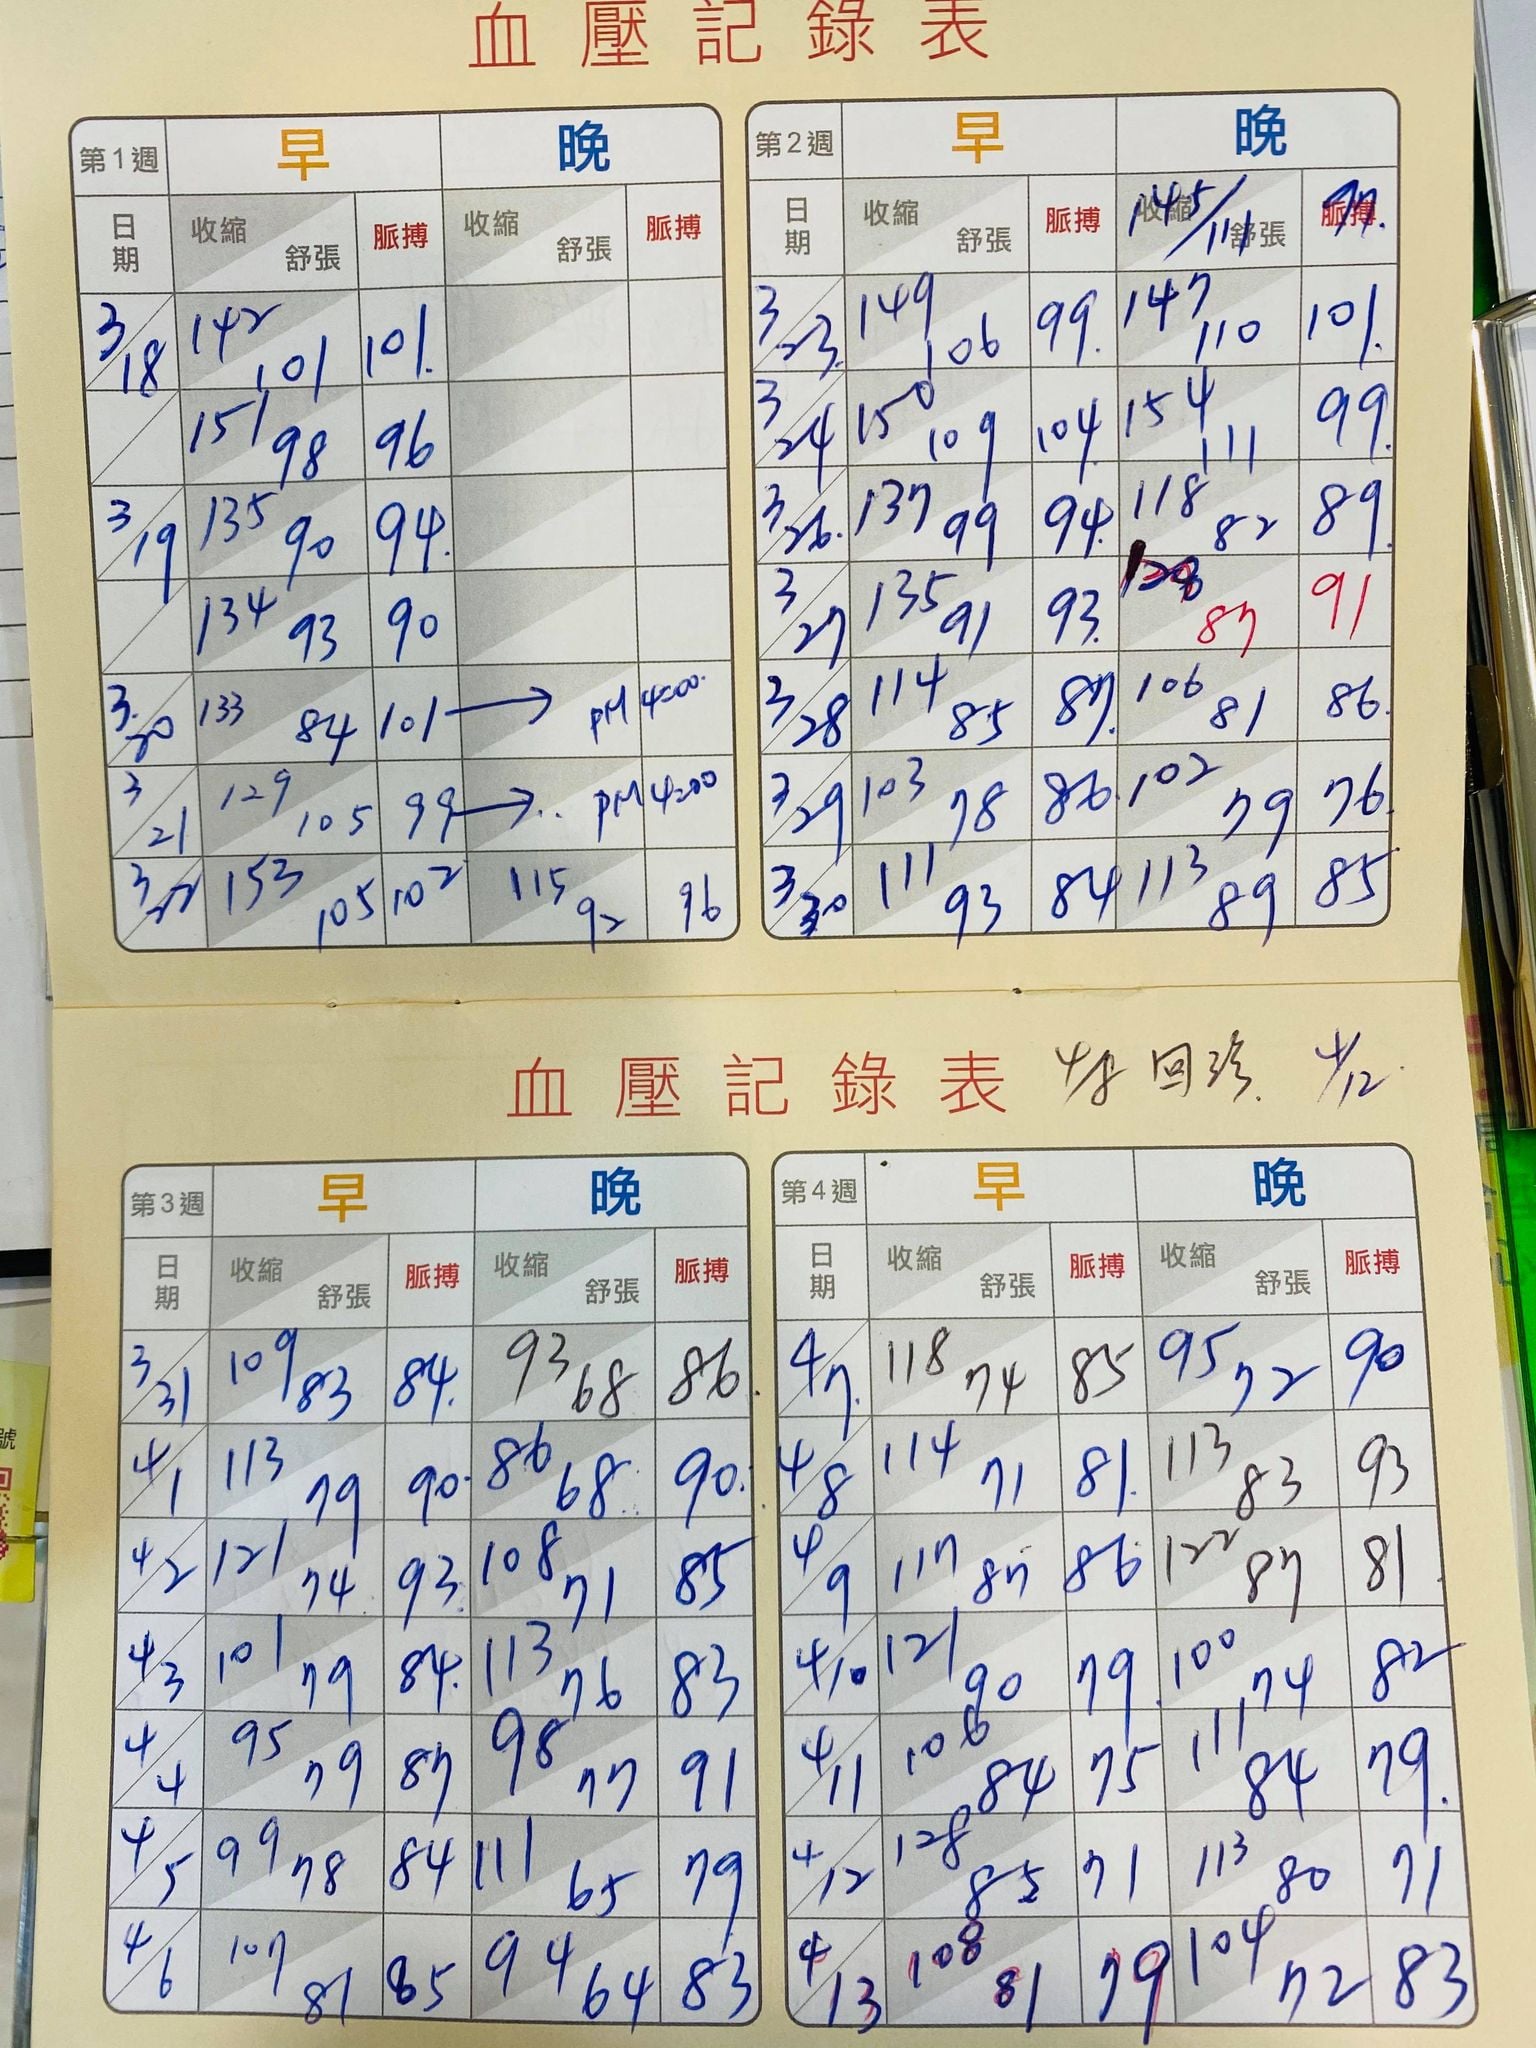 血壓記錄表
第1週 早 晚
日期 收縮 舒張 脈搏 收縮 舒張 脈搏
3/18 142 101 101.
151 98 96
3/19 135 90 94.
134 93 90
3/20 133 84 101 → PM 4:00.
3/21 129 105 99 → .. PM 4:00
3/22 153 105 102 115 92 96
第2週 早 晚
日期 收縮 舒張 脈搏 收縮 舒張 脈搏
145/111 97.
3/23. 149 106 99. 147 110 101.
3/24 150 109 104. 154 111 99.
3/26. 137 99 94. 118 82 89.
3/27 135 91 93. 87 91
3/28 114 85 87. 106 81 86.
3/29 103 78 86. 102 79 76.
3/30 111 93 84 113 89 85
血壓記錄表 回診. 4/12.
第3週 早 晚
日期 收縮 舒張 脈搏 收縮 舒張 脈搏
3/31 109 83 84. 93 68 86
4/1 113 79 90. 86 68 90.
4/2 121 74 93. 108 71 85
4/3 101 79 84. 113 76 83
4/4 95 79 87 98 77 91
4/5 99 78 84 111 65 79
4/6 107 81 85 94 64 83
第4週 早 晚
日期 收縮 舒張 脈搏 收縮 舒張 脈搏
4/7. 118 74 85 95 72 90
4/8 114 71 81. 113 83 93
4/9 117 87 86 122 87 81.
4/10 121 90 79. 100 74 82
4/11 106 84 75 111 84 79.
4/12 128 85 71 113 80 71
4/13 108 81 79 104 72 83
號